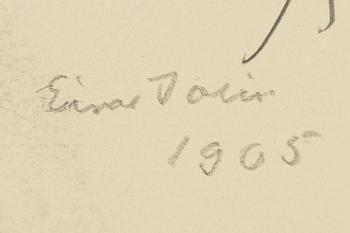 Einar Jolin
1905